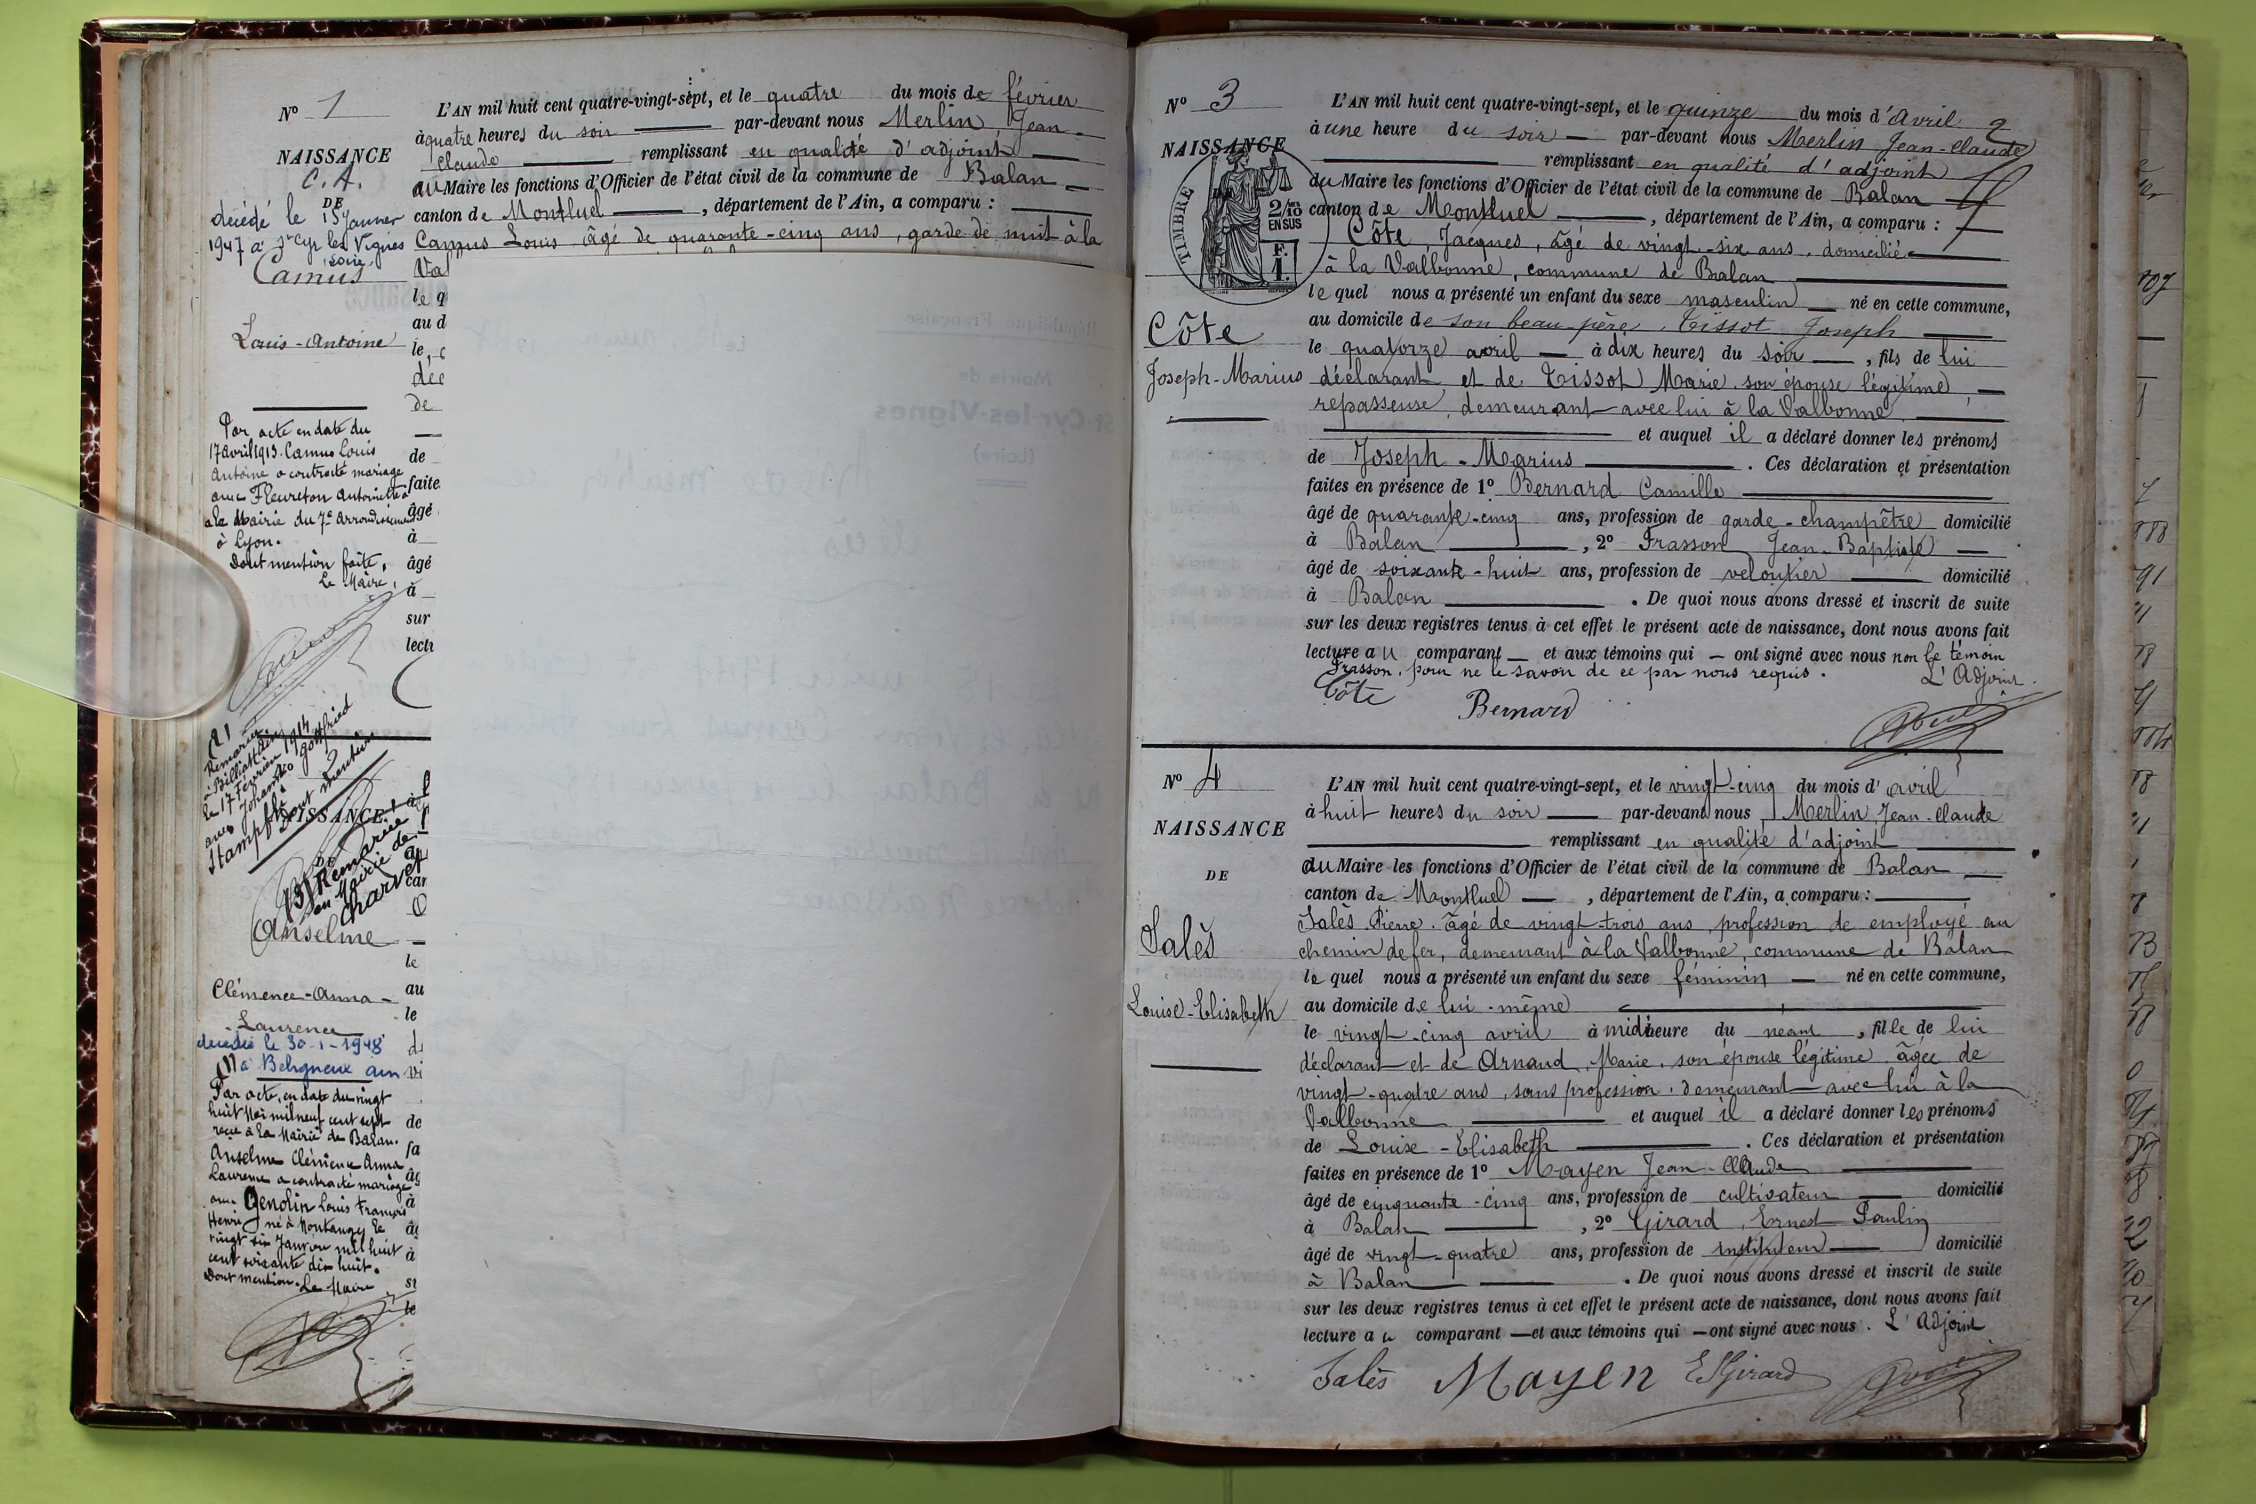 N° 1
L'AN mil huit cent quatre-vingt-sept, et le quatre du mois de février
à quatre heures du soir par-devant nous Merlin Jean-
Claude remplissant en qualité d'adjoint
au Maire les fonctions d'Officier de l'état civil de la commune de Balan
canton de Montluel, département de l'Ain, a comparu :
Camus Louis âgé de quarante-cinq ans, garde de nuit à la
Val
le q
au d
le,
déc
de
de
faite
âgé
à
âgé
à
sur
lectu
NAISSANCE
C. A.
DE
décédé le 15 Janvier
1947 à St Cyr les Vignes
Loire
Camus
Louis-Antoine
Par acte en date du
17 avril 1913. Camus Louis
Antoine a contracté mariage
avec Fleureton Antoinette
à la Mairie du 7e Arrondissement
à Lyon.
Dont mention faite,
Le Maire,
Remariée
à Billiat Ain
le 17 Février 1914
avec Johannio Gottfried
Stampfli
Dont mention
NAISSANCE
DE
(3) Remariée
en Mairie de
Charvet
Anselme
Clémence-Anna-
Laurence
décédée le 30-1-1948
à Béligneux ain
(1)
Par acte, en date du vingt
huit Mai mil neuf cent sept
reçu à la Mairie de Balan.
Anselme Clémence Anna
Laurence a contracté mariage
avec Genolin Louis François
Henri né à Montanges le
vingt six Janvier mil huit
cent soixante dix huit.
Dont mention. Le Maire
République Française
Mairie de
St-Cyr-les-Vignes
(Loire)
N° 3
NAISSANCE
DE
TIMBRE
2/10 EN SUS
F. 1.
Côte
Joseph-Marius
L'AN mil huit cent quatre-vingt-sept, et le quinze du mois d'avril
à une heure du soir par-devant nous Merlin Jean-Claude
remplissant en qualité d'adjoint
du Maire les fonctions d'Officier de l'état civil de la commune de Balan
canton de Montluel, département de l'Ain, a comparu :
Côte, Jacques, âgé de vingt-six ans, domicilié
à la Valbonne, commune de Balan
le quel nous a présenté un enfant du sexe masculin né en cette commune,
au domicile de son beau-père, Tissot Joseph
le quatorze avril à dix heures du soir, fils de lui
déclarant et de Tissot Marie, son épouse légitime,
repasseuse, demeurant avec lui à la Valbonne
et auquel il a déclaré donner les prénoms
de Joseph-Marius. Ces déclaration et présentation
faites en présence de 1° Bernard Camille
âgé de quarante-cinq ans, profession de garde-champêtre domicilié
à Balan, 2° Frasson Jean-Baptiste
âgé de soixante-huit ans, profession de veloutier domicilié
à Balan. De quoi nous avons dressé et inscrit de suite
sur les deux registres tenus à cet effet le présent acte de naissance, dont nous avons fait
lecture au comparant et aux témoins qui ont signé avec nous non le témoin
Frasson, pour ne le savoir de ce par nous requis.
L'Adjoint.
Côte Bernard
N° 4
NAISSANCE
DE
Salès
Louise-Elisabeth
L'AN mil huit cent quatre-vingt-sept, et le vingt-cinq du mois d'avril
à huit heures du soir par-devant nous Merlin Jean-Claude
remplissant en qualité d'adjoint
au Maire les fonctions d'Officier de l'état civil de la commune de Balan
canton de Montluel, département de l'Ain, a comparu :
Salès Pierre, âgé de vingt-trois ans, profession de employé au
chemin de fer, demeurant à la Valbonne, commune de Balan
le quel nous a présenté un enfant du sexe féminin né en cette commune,
au domicile de lui-même
le vingt-cinq avril à midi heure du néant, fille de lui
déclarant et de Arnaud, Marie, son épouse légitime âgée de
vingt-quatre ans, sans profession, demeurant avec lui à la
Valbonne et auquel il a déclaré donner les prénoms
de Louise-Elisabeth. Ces déclaration et présentation
faites en présence de 1° Mayen Jean-Claude
âgé de cinquante-cinq ans, profession de cultivateur domicilié
à Balan, 2° Girard, Ernest Paulin
âgé de vingt-quatre ans, profession de instituteur domicilié
à Balan. De quoi nous avons dressé et inscrit de suite
sur les deux registres tenus à cet effet le présent acte de naissance, dont nous avons fait
lecture au comparant et aux témoins qui ont signé avec nous. L'Adjoint
Salès Mayen E Girard